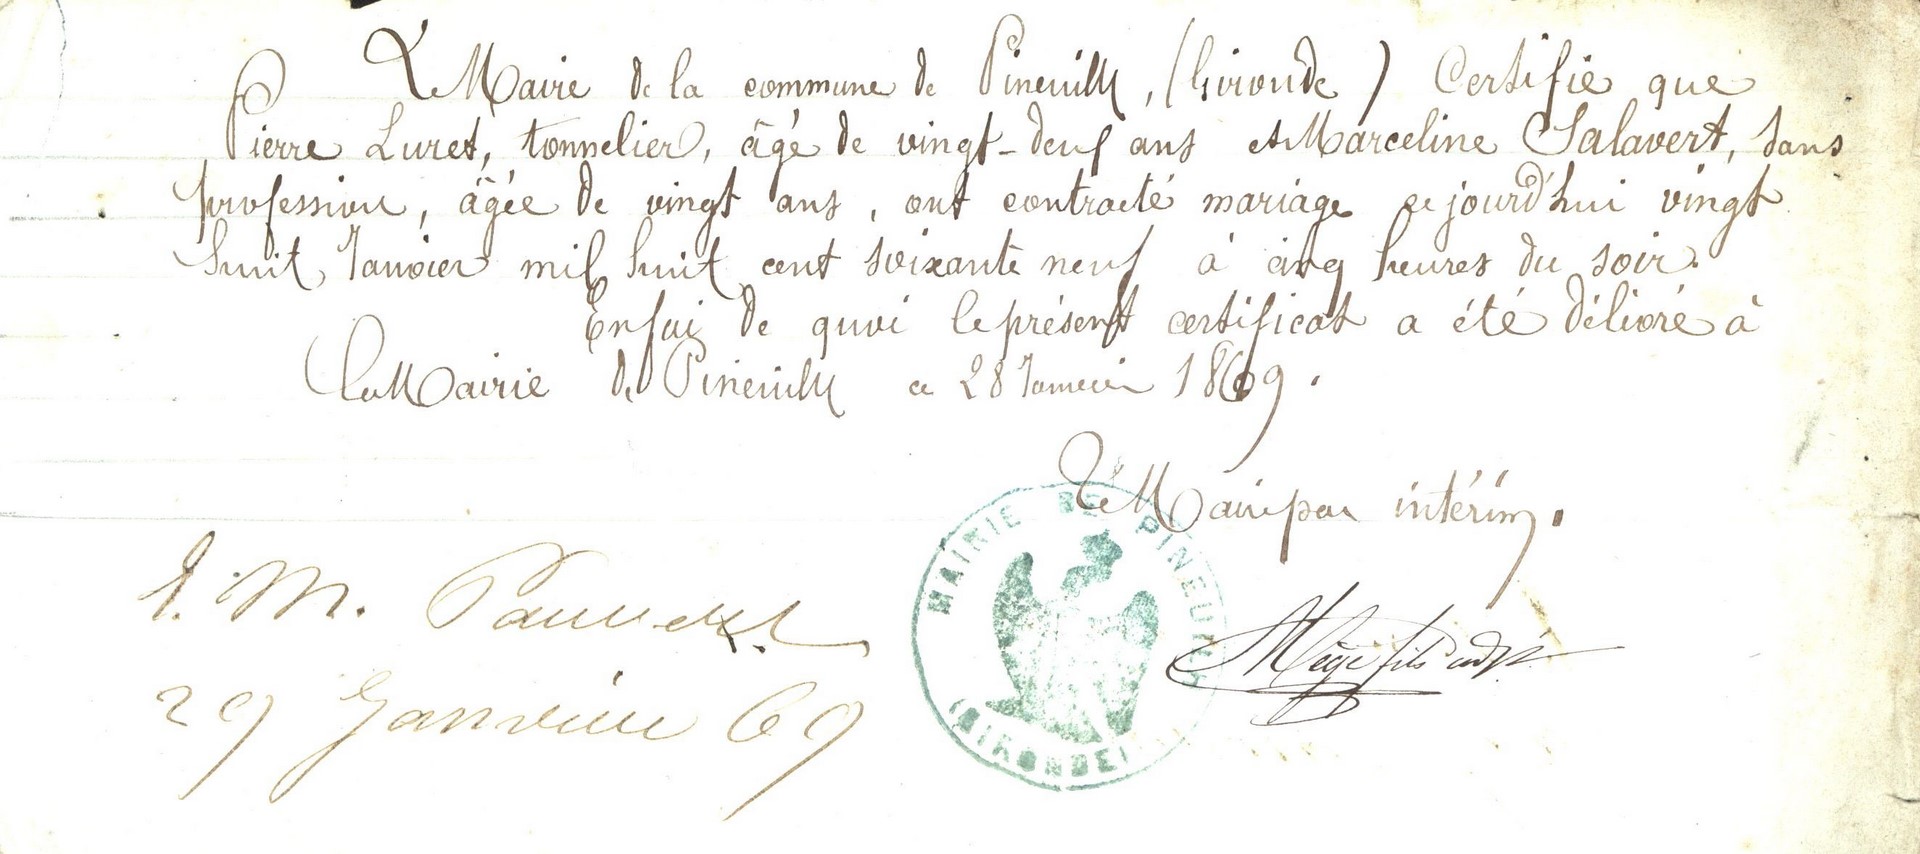 Le Maire de la commune de Pineuilh, (Gironde) Certifie que
Pierre Luret, tonnelier, âgé de vingt-deux ans et Marceline Salavert, sans
profession, âgée de vingt ans, ont contracté mariage ce jourd'hui vingt
huit Janvier mil huit cent soixante neuf à cinq heures du soir.
En foi de quoi le présent certificat a été délivré à
la Mairie de Pineuilh ce 28 Janvier 1869.
Le Maire par intérim.
MAIRIE DE PINEUILH
(GIRONDE)
Mège fils adjt
29 Janvier 69